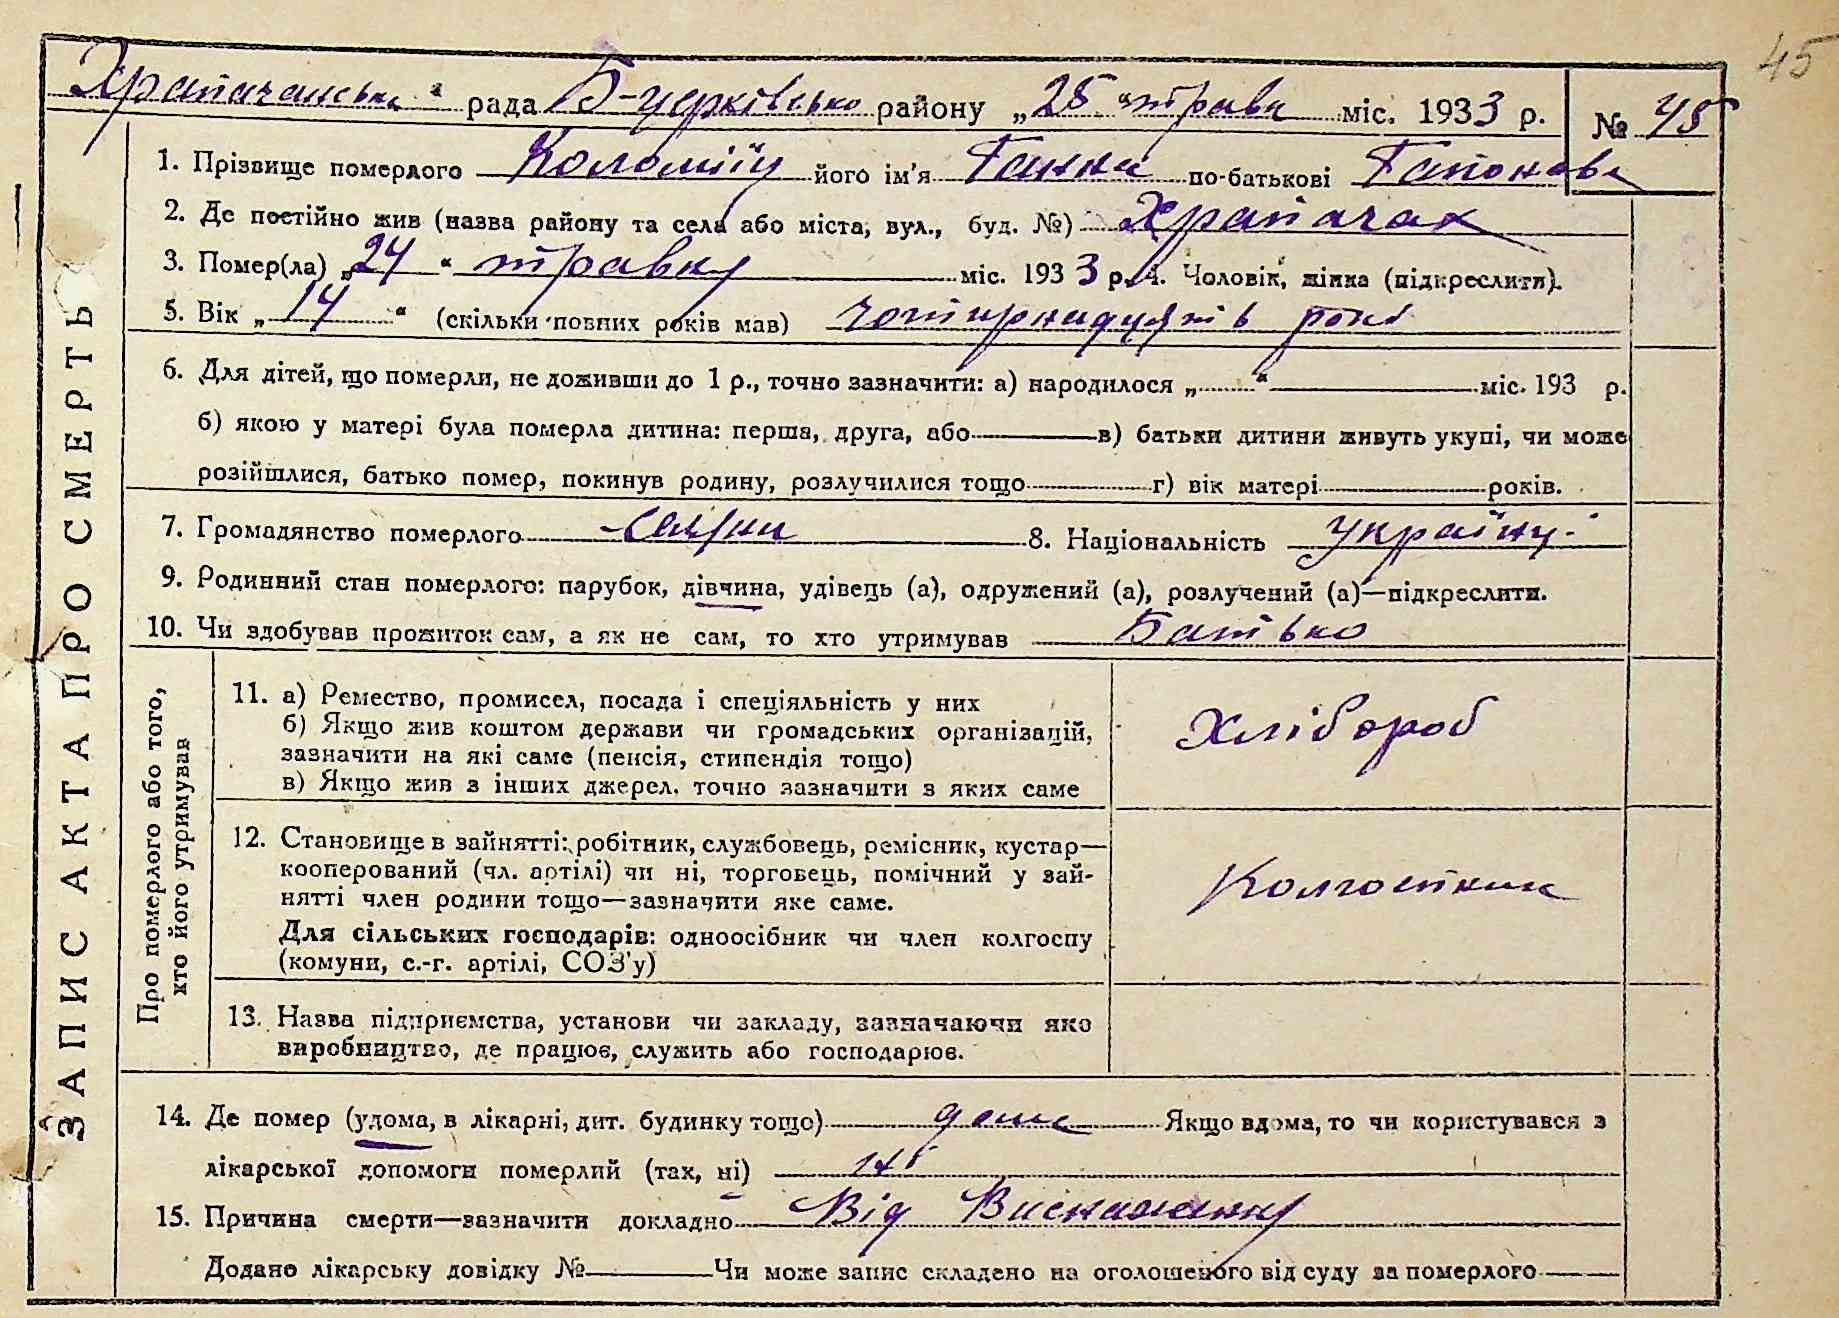 45
Храпачанська рада Б-церківсько району „25“ травн міс. 1933 р. № 45
1. Прізвище померлого Коломієц його ім'я Ганна по-батькові Гапонова
2. Де постійно жив (назва району та села або міста, вул., буд. №) Храпачах
3. Помер(ла) „24“ травня міс. 1933 р. 4. Чоловік, жінка (підкреслити).
5. Вік „14“ (скільки повних років мав) чотирнадцять рокі
6. Для дітей, що померли, не доживши до 1 р., точно зазначити: а) народилося „ “ міс. 193 р.
б) якою у матері була померла дитина: перша, друга, або в) батьки дитини живуть укупі, чи може
розійшлися, батько помер, покинув родину, розлучилися тощо г) вік матері років.
7. Громадянство померлого 8. Національність україн.
9. Родинний стан померлого: парубок, дівчина, удівець (а), одружений (а), розлучений (а)—підкреслити.
10. Чи здобував прожиток сам, а як не сам, то хто утримував Батько
ЗАПИС АКТА ПРО СМЕРТЬ
Про померлого або того,
хто його утримував
11. а) Ремество, промисел, посада і спеціяльність у них
б) Якщо жив коштом держави чи громадських організацій,
зазначити на які саме (пенсія, стипендія тощо)
в) Якщо жив з інших джерел. точно зазначити з яких саме
Хлібороб
12. Становище в зайнятті: робітник, службовець, ремісник, кустар—
кооперований (чл. артілі) чи ні, торговець, помічний у зай-
нятті член родини тощо—зазначити яке саме.
Для сільських господарів: одноосібник чи член колгоспу
(комуни, с.-г. артілі, СОЗ'у)
Колгоспник
13. Назва підприємства, установи чи закладу, зазначаючи яко
виробництво, де працює, служить або господарює.
14. Де помер (удома, в лікарні, дит. будинку тощо) дома Якщо вдома, то чи користувався з
лікарської допомоги померлий (так, ні) ні
15. Причина смерти—зазначити докладно Від Виснаження
Додано лікарську довідку № Чи може запис складено на оголошеного від суду за померлого